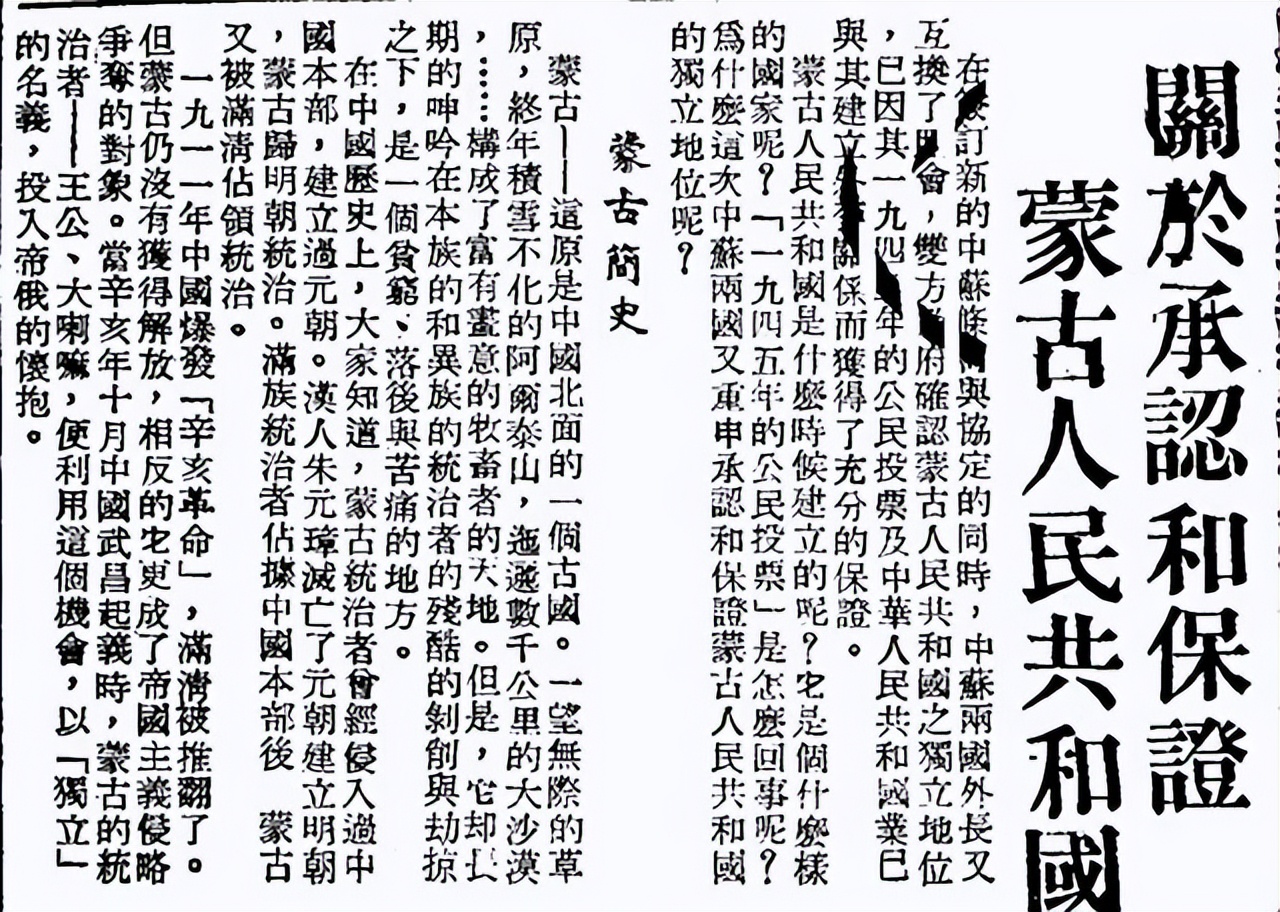 關於承認和保證
蒙古人民共和國
在簽訂新的中蘇條約與協定的同時，中蘇兩國外長又
互換了照會，雙方政府確認蒙古人民共和國之獨立地位
，已因其一九四五年的公民投票及中華人民共和國業已
與其建立外交關係而獲得了充分的保證。
蒙古人民共和國是什麼時候建立的呢？它是個什麼樣
的國家呢？「一九四五年的公民投票」是怎麼回事呢？
爲什麼這次中蘇兩國又重申承認和保證蒙古人民共和國
的獨立地位呢？
蒙古簡史
蒙古——這原是中國北面的一個古國。一望無際的草
原，終年積雪不化的阿爾泰山，迤邐數千公里的大沙漠
，……構成了富有畫意的牧畜者的天地。但是，它却長
期的呻吟在本族的和異族的統治者的殘酷的剝削與劫掠
之下，是一個貧窮、落後與苦痛的地方。
在中國歷史上，大家知道，蒙古統治者曾經侵入過中
國本部，建立過元朝。漢人朱元璋滅亡了元朝建立明朝
，蒙古歸明朝統治。滿族統治者佔據中國本部後　蒙古
又被滿清佔領統治。
一九一一年中國爆發「辛亥革命」，滿清被推翻了。
但蒙古仍沒有獲得解放，相反的它更成了帝國主義侵略
爭奪的對象。當辛亥年十月中國武昌起義時，蒙古的統
治者——王公、大喇嘛，便利用這個機會，以「獨立」
的名義，投入帝俄的懷抱。